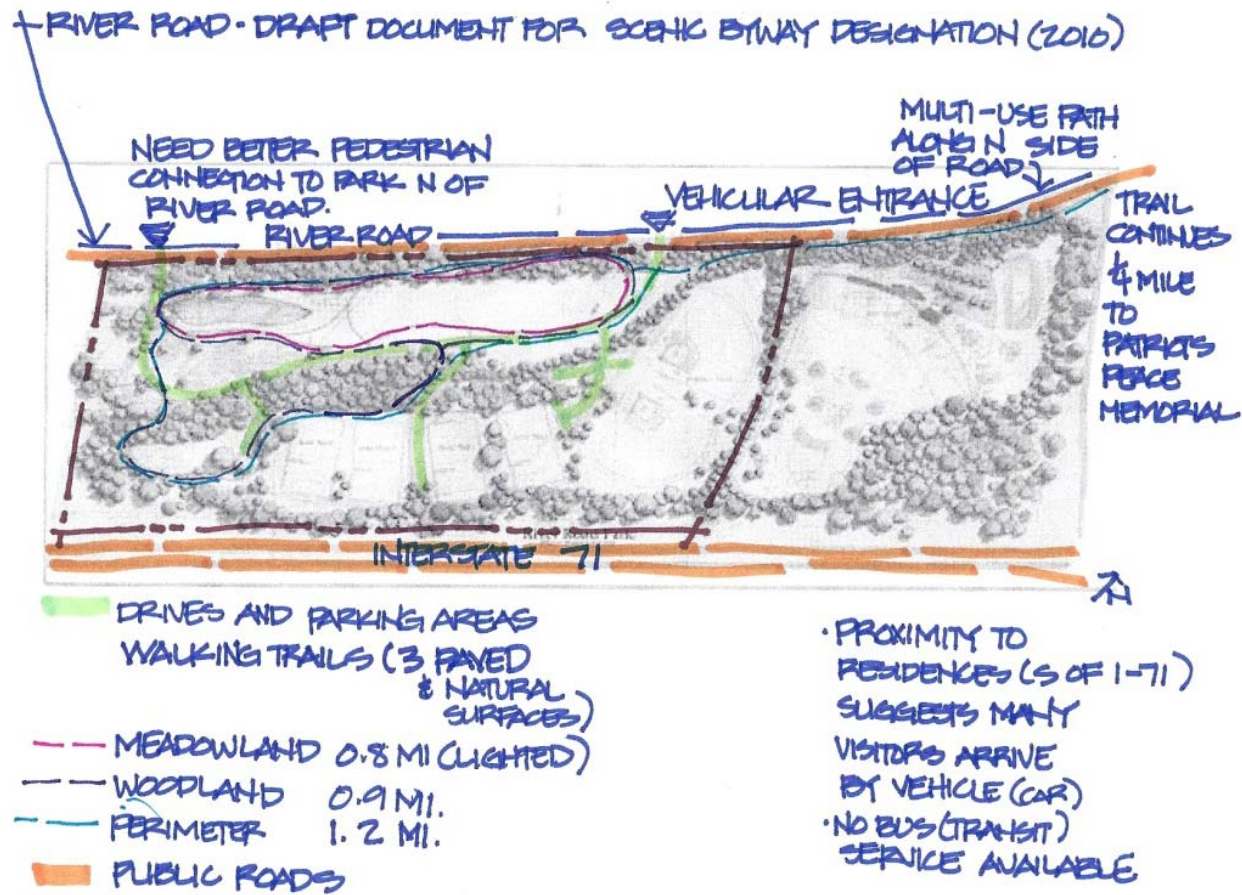 RIVER ROAD - DRAFT DOCUMENT FOR SCENIC BYWAY DESIGNATION (2010)
NEED BETTER PEDESTRIAN
CONNECTION TO PARK N OF
RIVER ROAD.
MULTI-USE PATH
ALONG N SIDE
OF ROAD
VEHICULAR ENTRANCE
RIVER ROAD
TRAIL
CONTINUES
1/4 MILE
TO
PATRIOTS
PEACE
MEMORIAL
River Road Park
INTERSTATE 71
N
DRIVES AND PARKING AREAS
WALKING TRAILS (3 PAVED
& NATURAL
SURFACES)
MEADOWLAND 0.8 MI (LIGHTED)
WOODLAND 0.9 MI.
PERIMETER 1.2 MI.
PUBLIC ROADS
·PROXIMITY TO
RESIDENCES (S OF I-71)
SUGGESTS MANY
VISITORS ARRIVE
BY VEHICLE (CAR)
·NO BUS (TRANSIT)
SERVICE AVAILABLE